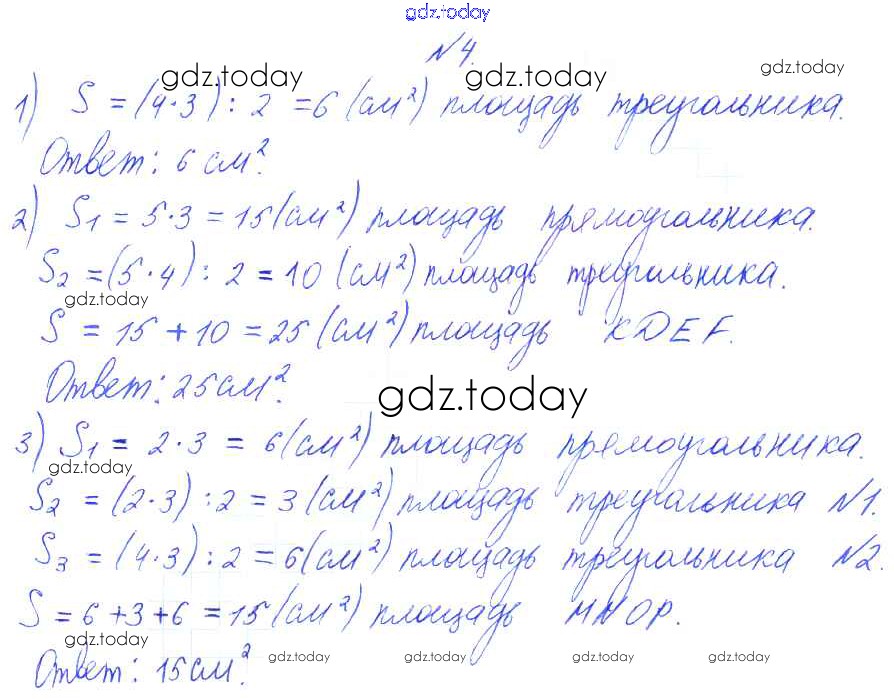 gdz.today
№4.
gdz.today gdz.today gdz.today
1) S = (4·3) : 2 = 6 (см²) площадь треугольника.
Ответ: 6 см².
2) S₁ = 5·3 = 15 (см²) площадь прямоугольника.
S₂ = (5·4) : 2 = 10 (см²) площадь треугольника.
gdz.today
S = 15 + 10 = 25 (см²) площадь KDEF.
Ответ: 25 см².
gdz.today
3) S₁ = 2·3 = 6 (см²) площадь прямоугольника.
gdz.today
S₂ = (2·3) : 2 = 3 (см²) площадь треугольника №1.
S₃ = (4·3) : 2 = 6 (см²) площадь треугольника №2.
S = 6 + 3 + 6 = 15 (см²) площадь MNOP.
gdz.today
Ответ: 15 см².
gdz.today gdz.today gdz.today gdz.today